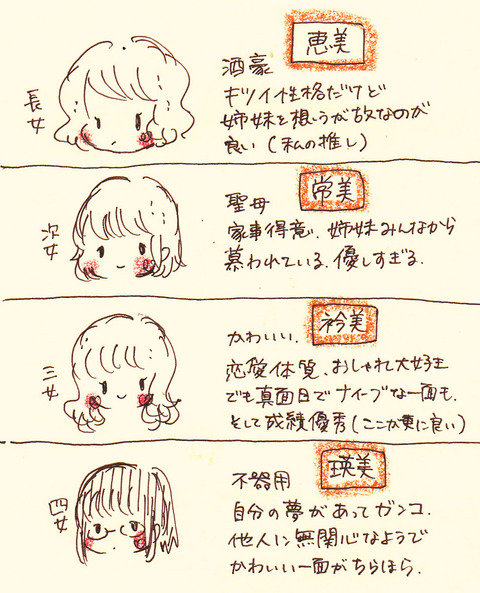 恵美
長女
酒豪
キツイ性格だけど
姉妹を想うが故なのが
良い(私の推し)
常美
次女
聖母
家事得意、姉妹みんなから
慕われている。優しすぎる。
衿美
三女
かわいい。
恋愛体質、おしゃれ大好き
でも真面目でナイーブな一面も。
そして成績優秀(ここが更に良い)
瑛美
四女
不器用
自分の夢があってガンコ。
他人に無関心なようで
かわいい一面がちらほら。